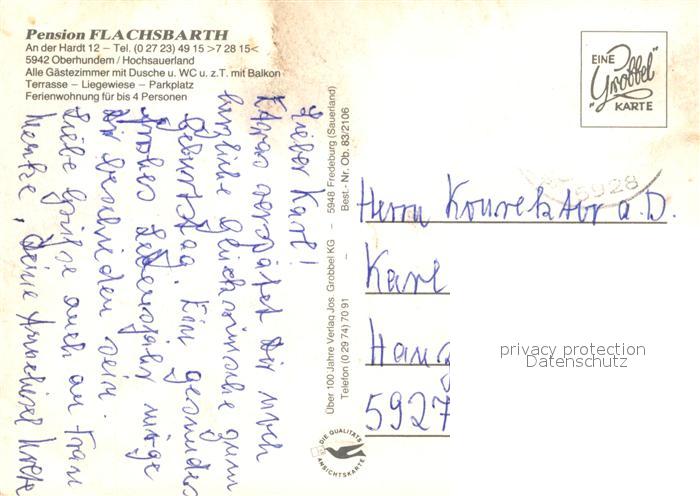 Pension FLACHSBARTH
An der Hardt 12 – Tel. (0 27 23) 49 15 >7 28 15<
5942 Oberhundem / Hochsauerland
Alle Gästezimmer mit Dusche u. WC u. z.T. mit Balkon
Terrasse – Liegewiese – Parkplatz
Ferienwohnung für bis 4 Personen
Lieber Karl!
Etwas verspätet Dir noch
herzliche Glückwünsche zum
Geburtstag. Ein gesundes
frohes Lebensjahr möge
Dir beschieden sein.
Liebe Grüße auch an Frau
Deine Anneliese
Über 100 Jahre Verlag Jos. Grobbel KG – 5948 Fredeburg (Sauerland)
Telefon (0 29 74) 70 91 – Best.- Nr. Ob. 83/2106
DIE QUALITÄTS
ANSICHTSKARTE
EINE
"Grobbel"
KARTE
5928
Herrn Konrektor a.D.
Karl
Hang
5927
privacy protection
Datenschutz